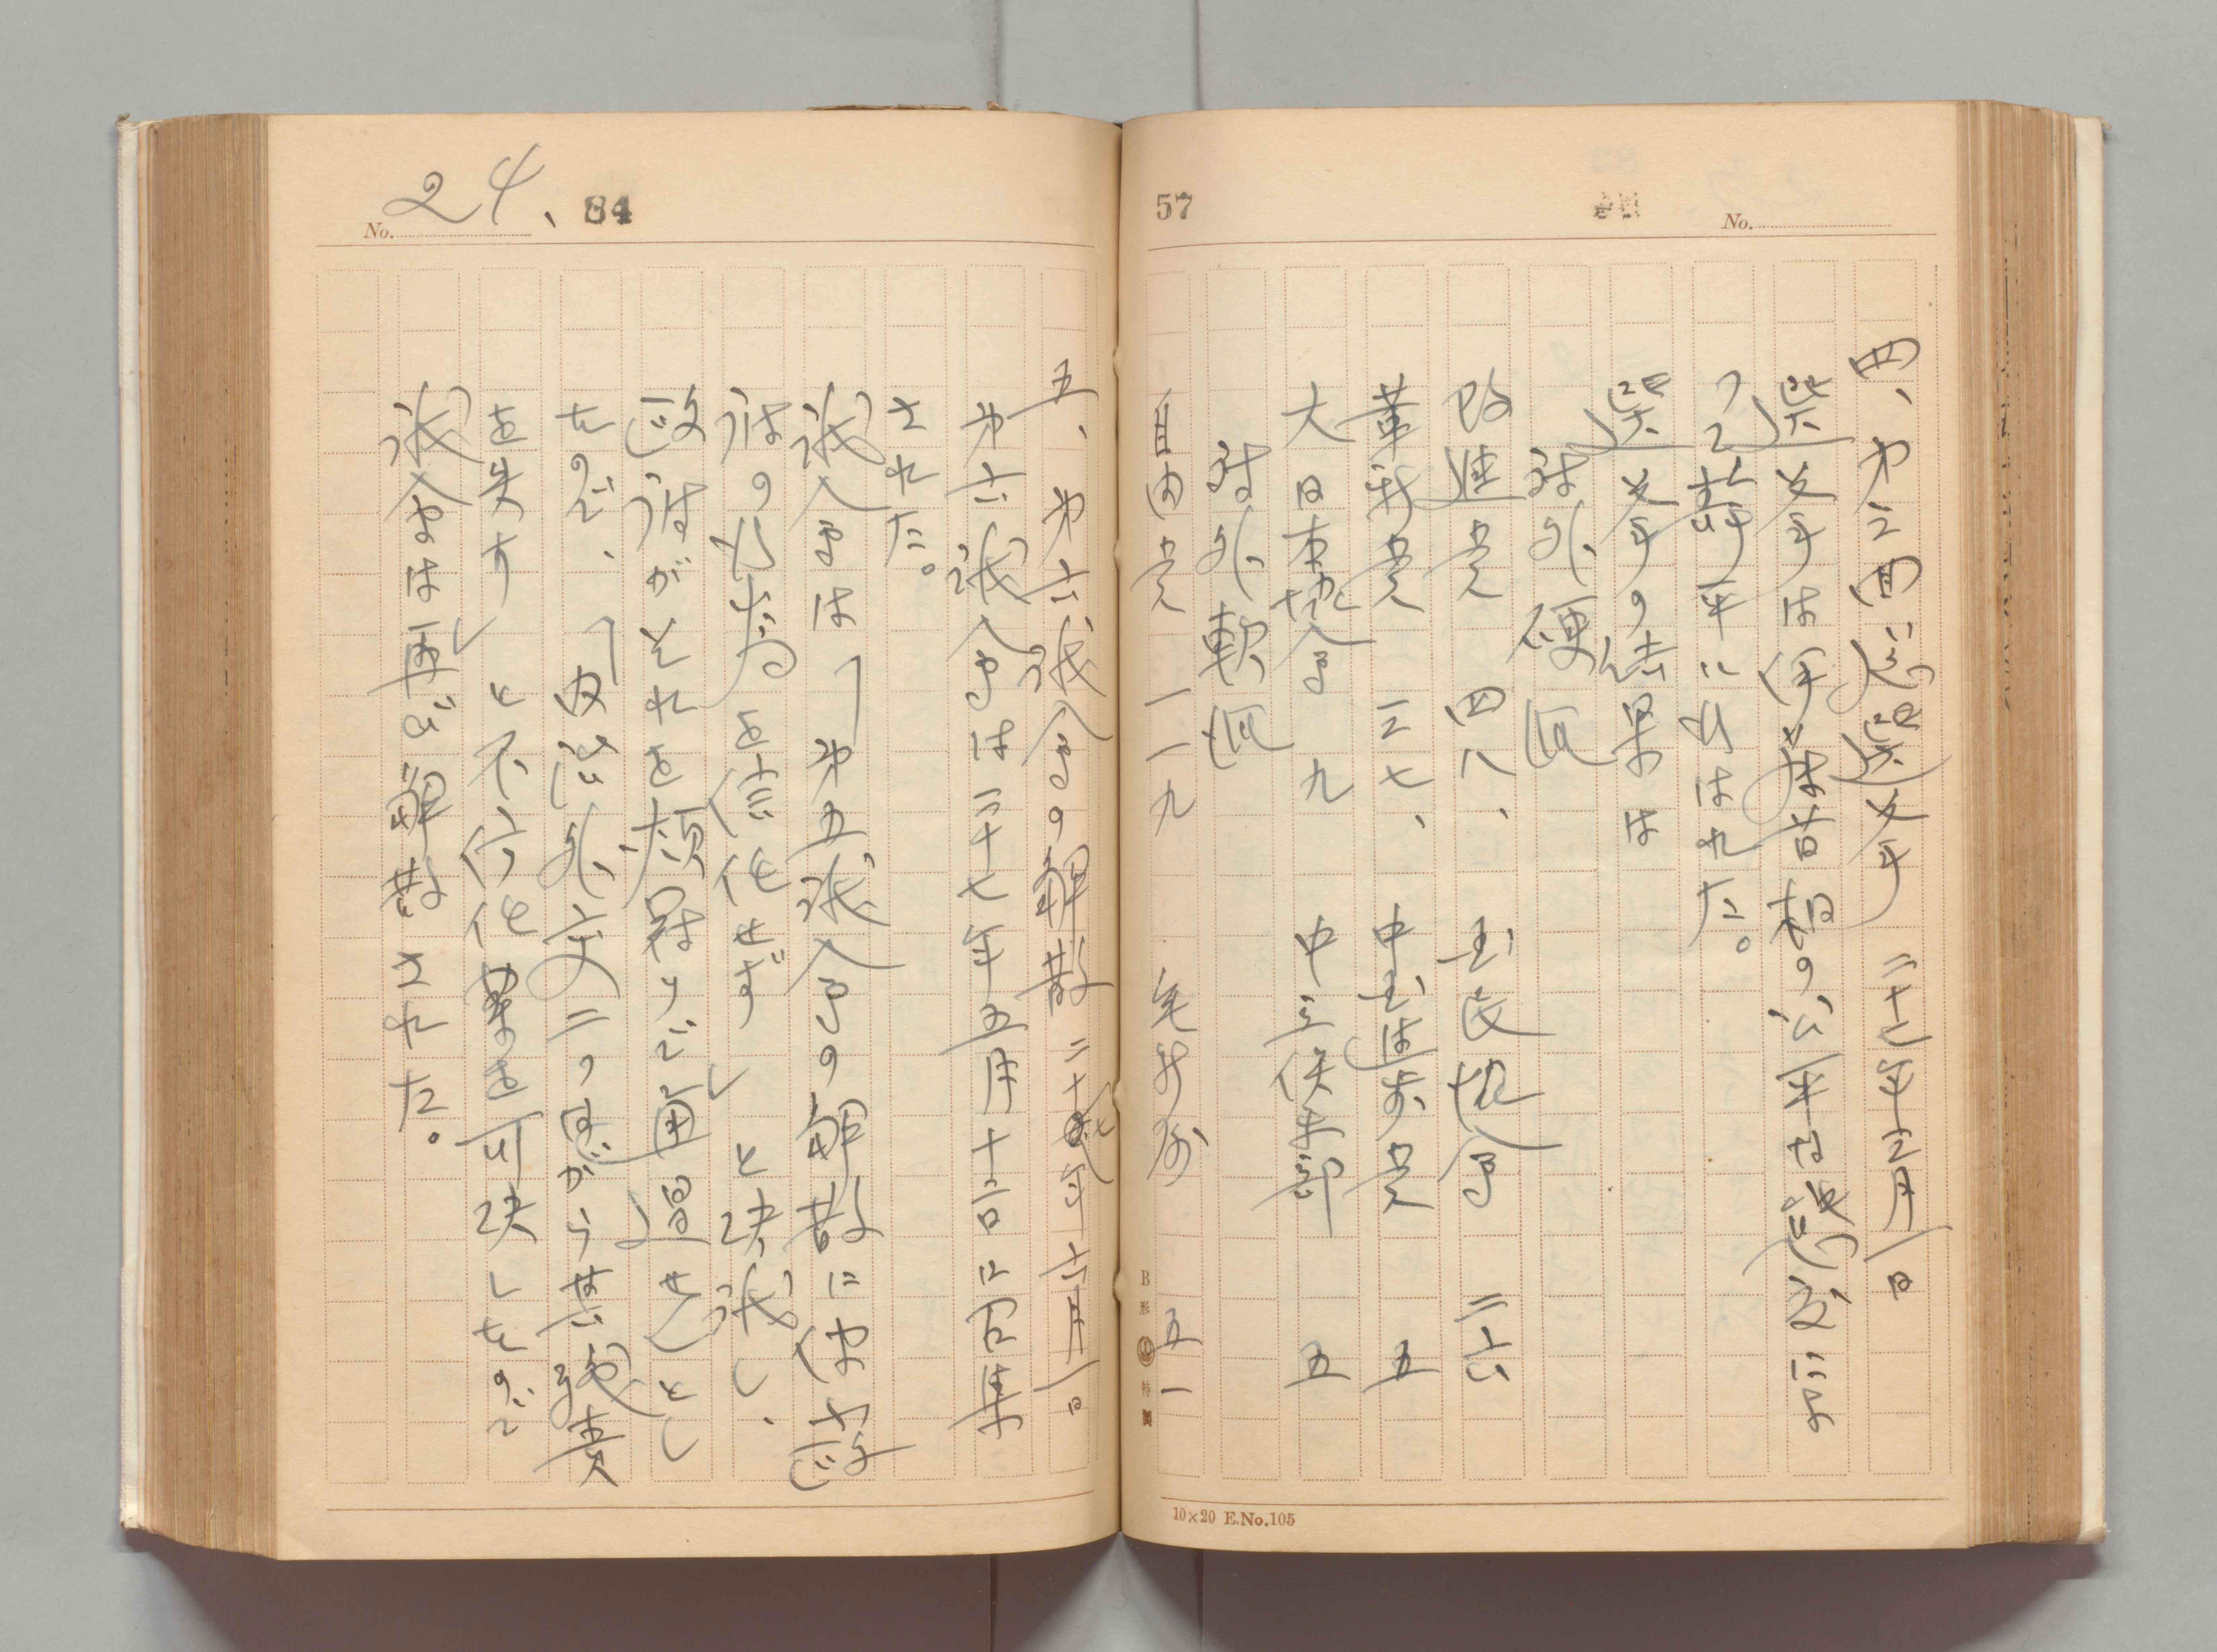 57
No.
四、第三回総選挙 二十七年三月一日
選挙は伊藤首相の公平な議政に
って静平に出はれた。
選挙の結果は
対外硬派
改進党 四八、 国民協会 二六
革新党 三七、 中国進歩党 五
大日本協会 九 中立倶楽部 五
対外軟派
自由党 一一九 無所属 五一
B形 特製
10×20 E.No.105
No. 24、 84
五、第六議会の解散 二十七年六月一日
第六議会は二十七年五月十二日に召集
された。
議会は「第五議会の解散には内
府の行為を信任せず」と決議し、
政府がそれを頬冠りで通過せんとし
たので、「内治外交二つながら其機責
を失す」と不信任案を可決したので
議会は再び解散された。